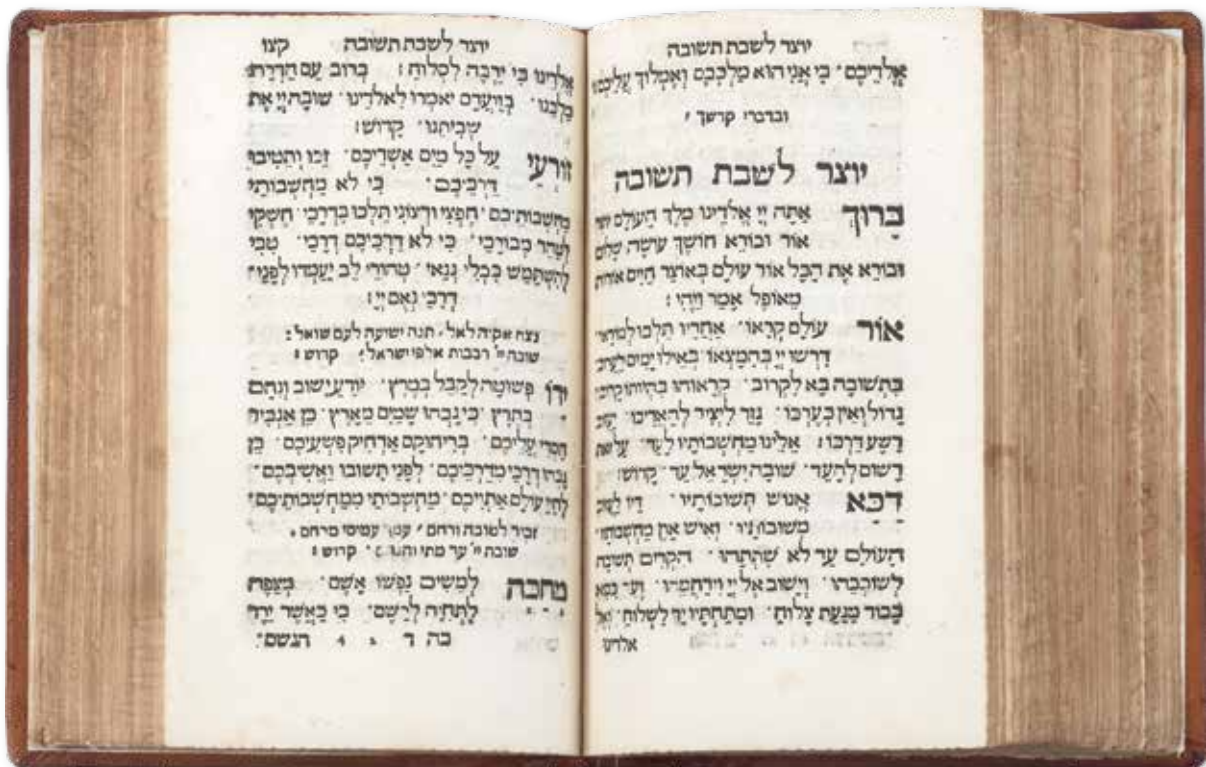 יוצר לשבת תשובה
אלהיכם· כי אני הוא מלככם ואמלוך עליכם׃
ובדברי קדשך׳
יוצר לשבת תשובה
ברוך אתה יי אלהינו מלך העולם יוצר
אור ובורא חושך עושה שלום
ובורא את הכל אור עולם באוצר חיים אורות
מאופל אמר ויהי׃
אור עולם קראו· אחריו תלכו
דרשו יי בהמצאו באילו ימים
בתשובה בא לקרוב· קראוהו בהיותו קרוב·
גדול ואין בערכו· יעזוב
רשע דרכו׃ אלינו מחשבותיו לעד· על זאת
רשום לתעד· שובה ישראל עד· קדוש׃
דכא אנוש תשובותיו דיו לשוב
ואיש און מחשבותיו·
העולם עד לא שתתהו· הקדים תשובה
וישוב אל יי וירחמהו· ועד כסא
כבוד מגעת צלוח· ומתחתיו יד לשלוח· ואל
אלהינו
יוצר לשבת תשובה קצו
אלהינו כי ירבה לסלוח׃ ברוב עם הדרת
מלכנו· יאמרו לאלהינו· שובה יי את
שביתנו· קדוש׃
זורעי על כל מים אשריכם· זכו והטיבו
דרכיכם· כי לא מחשבותי
מחשבותיכם· חפצי ורצוני תלכו בדרכי
כי לא דרכיכם דרכי·
להשתמש בכלי טהורי לב יעמדו לפני·
דרכי נאם יי׃
נצח אקוה לאל· תנה ישועה לעם שואל׃
שובה יי רבבות אלפי ישראל׃ קדוש׃
ידו פשוטה לקבל במרץ· יודע ישוב ונחם
בחרץ· כי גבהו שמים מארץ· כן אגביר
חסדי עליכם· בריחוקם ארחיק פשעיכם· כן
גבהו דרכי מדרכיכם· לפני תשובו ואשיבכם·
לחיי עולם אחייכם· מחשבותי ממחשבותיכם·
זכיר לטובה ורחם׳ עמך עמוסי מרחם·
שובה יי עד מתי והנחם· קדוש׃
מחכה למשים נפשו אשם· מצפה
לתחיה לרשם· כי כאשר ירד
כה ד 4 הגשם·